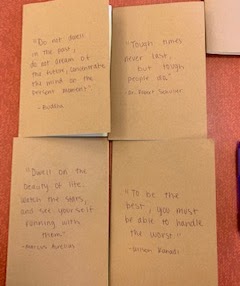 "Do not dwell
in the past,
do not dream of
the future, concentrate
the mind on the
present moment"
- Buddha
"Tough times
never last,
but tough
people do."
- Dr. Robert Schuller
"Dwell on the
beauty of life.
Watch the stars,
and see yourself
running with
them."
- Marcus Aurelius
"To be the
best, you must
be able to handle
the worst."
- Wilson Kanadi